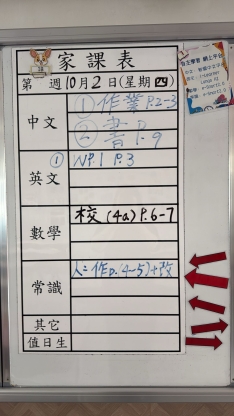 家課表
第 週10月2日(星期四)
中文 ①作業 P.2-3
②書 P.9
英文 ① WP.1 P.3
數學 校(4a)P.6-7
常識
其它
值日生
自主學習 網上平台